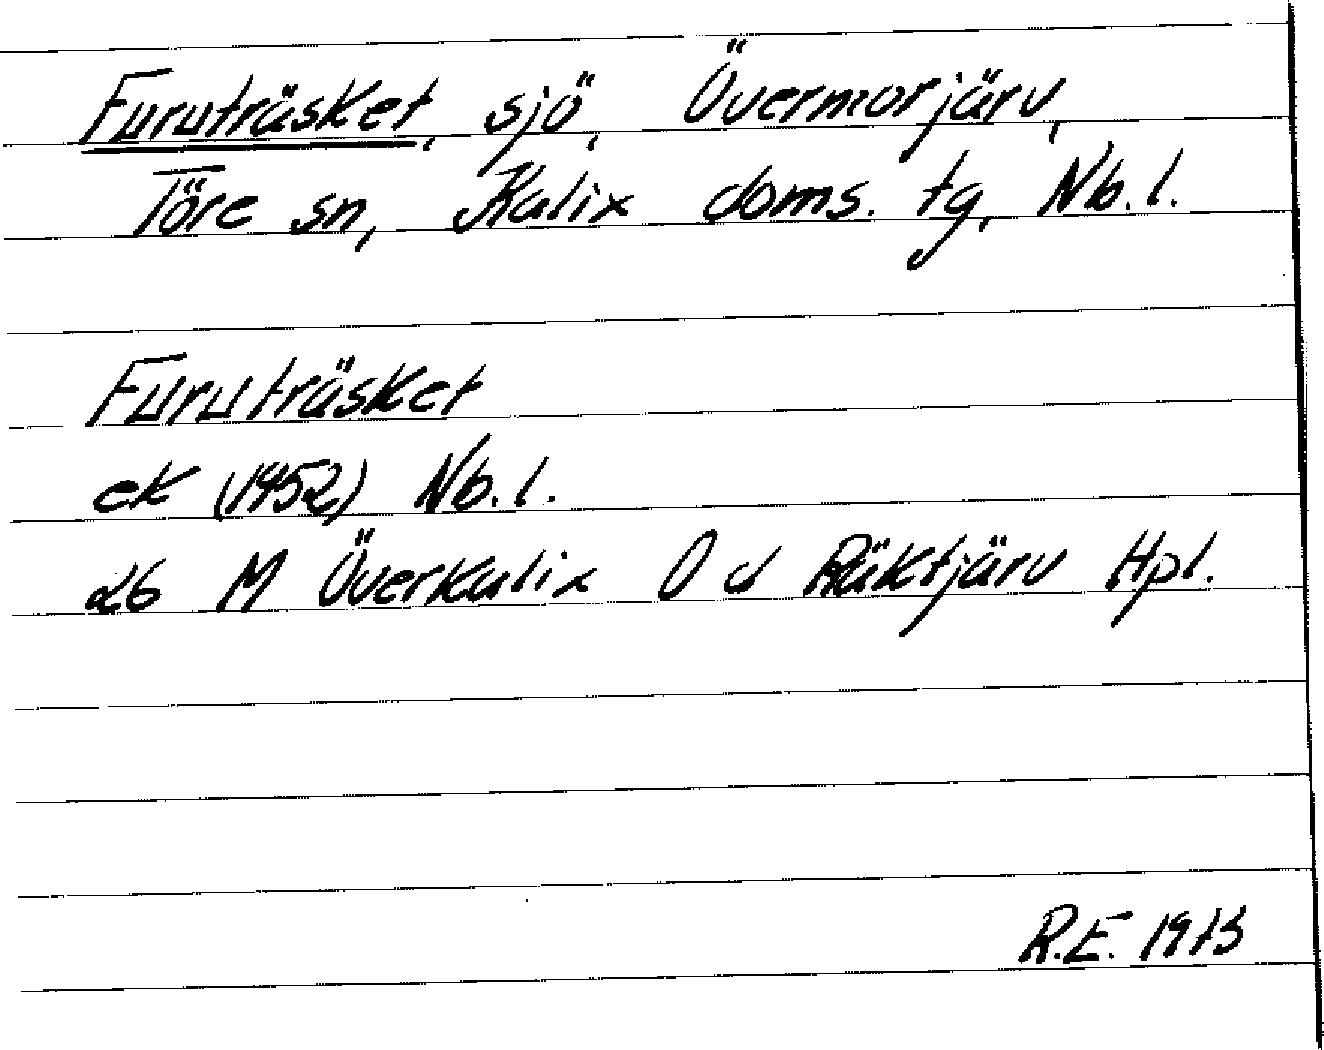 Furuträsket, sjö, Övermorjärv,
Töre sn, Kalix doms. tg, Nb.l.
Furuträsket
ek (1952) Nb.l.
26 M Överkalix O d Räktjärv Hpl.
R.E. 1973